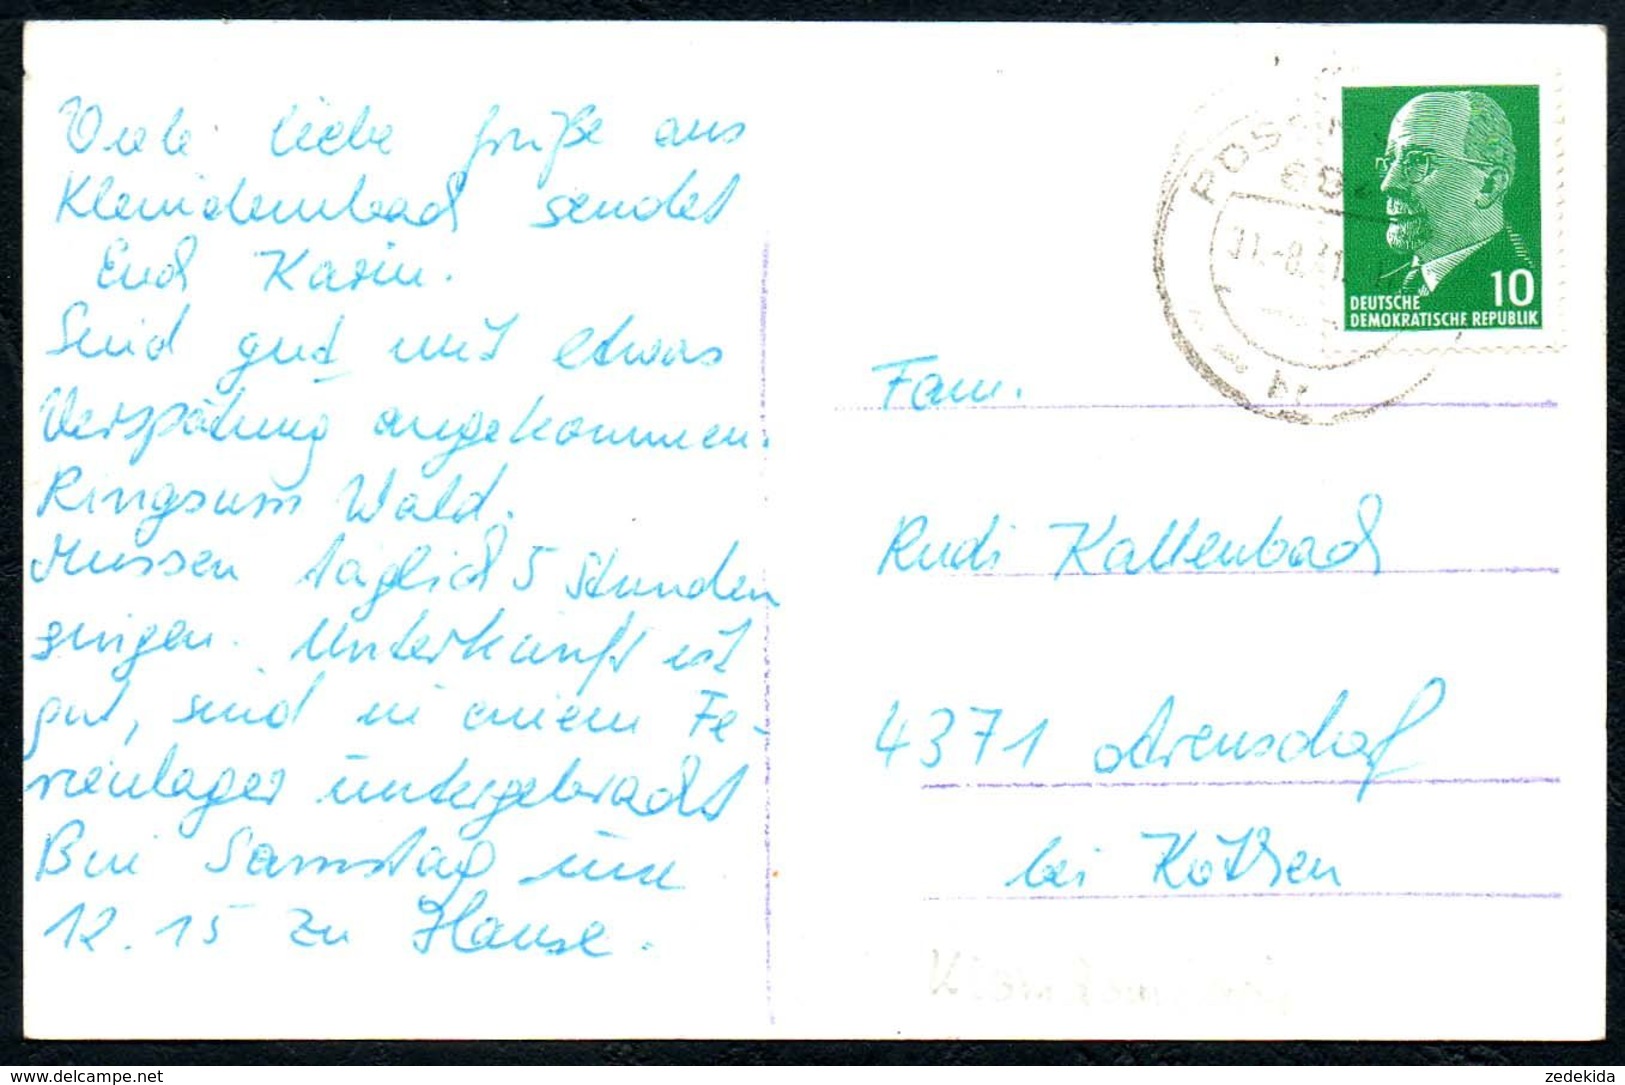 Viele liebe Grüße aus
Kleindembach sendet
Euch Karin.
Sind gut mit etwas
Verspätung angekommen.
Ringsum Wald.
Müssen täglich 5 Stunden
singen. Unterkunft ist
gut, sind in einem Fe-
rienlager untergebracht
Bin Samstag um
12.15 zu Hause.
10
DEUTSCHE
DEMOKRATISCHE REPUBLIK
Fam.
Rudi Kaltenbach
4371 Arensdorf
bei Köthen
zedekida